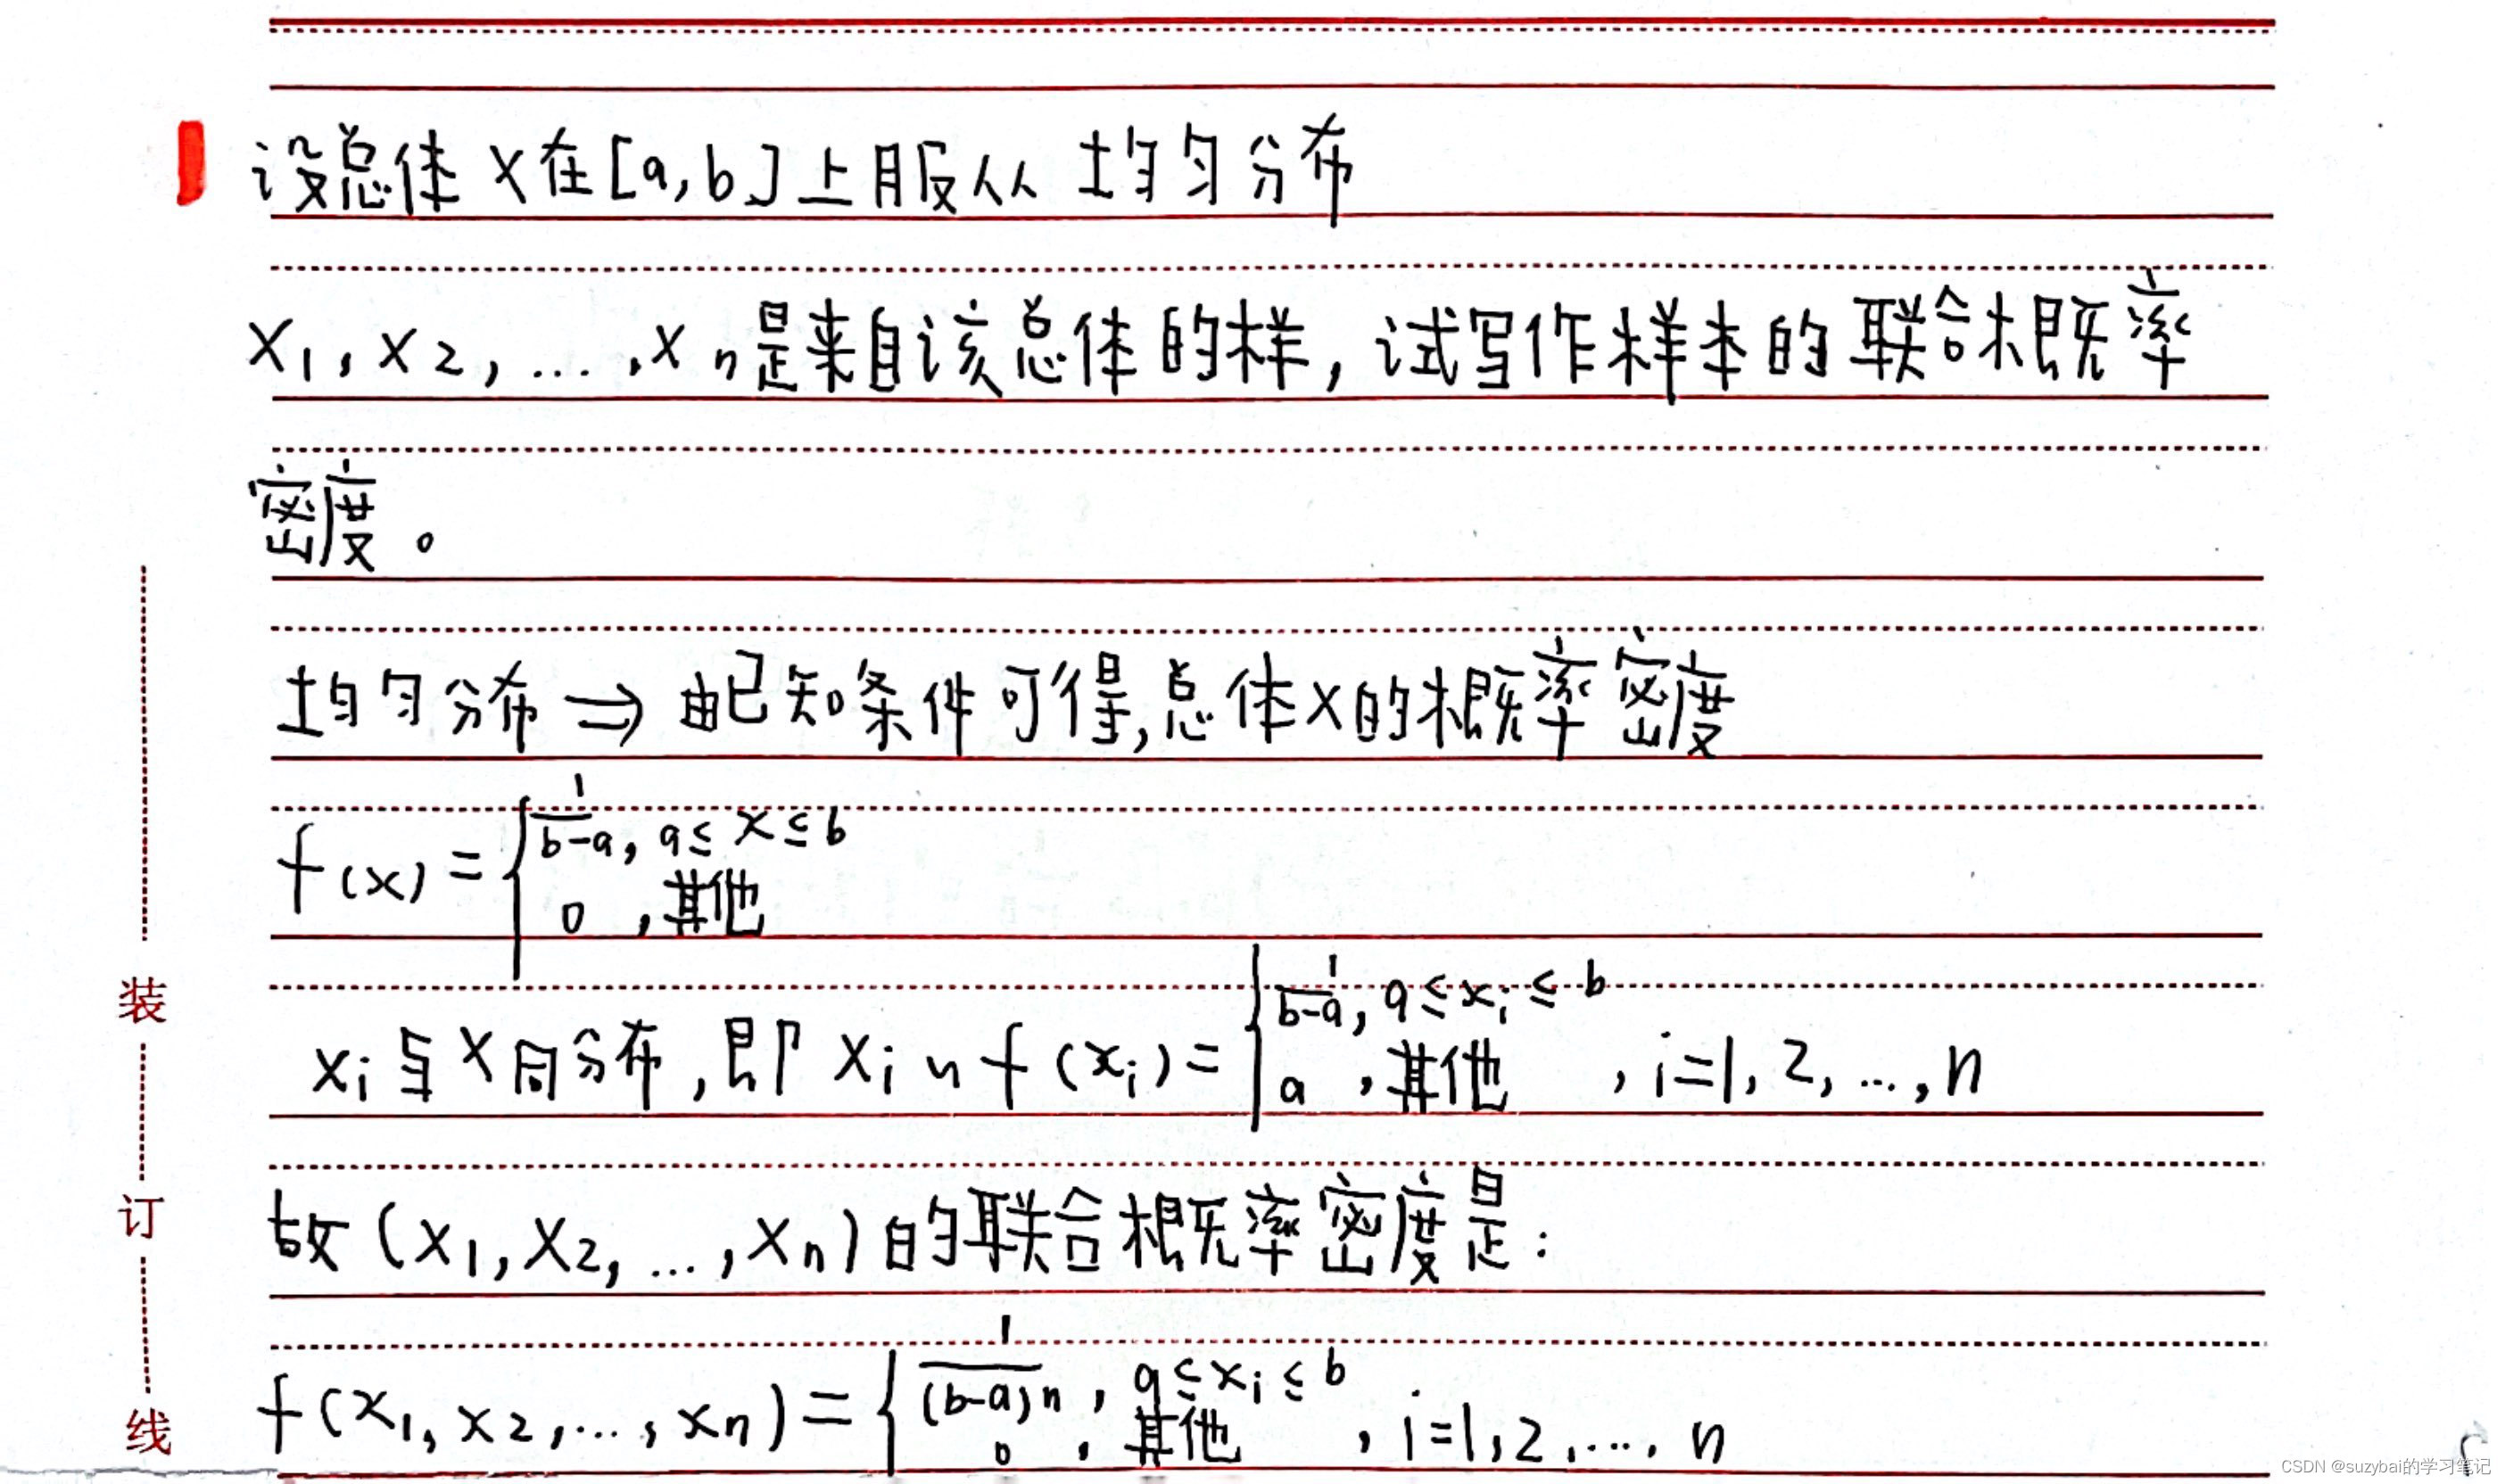 设总体 X在[a,b]上服从 均匀分布
X1, X2, ..., Xn是来自该总体的样,试写作样本的联合概率
密度。
均匀分布 ⇒ 由已知条件可得,总体X的概率密度
f(x) = { 1/(b-a), a≤x≤b
0 ,其他
Xi与X同分布,即 Xi ~ f(xi) = { 1/(b-a), a≤xi≤b
a ,其他 , i=1, 2, ..., n
故(X1, X2, ..., Xn)的联合概率密度是:
f(x1, x2, ..., xn) = { 1/(b-a)n , a≤xi≤b
0 , 其他 , i=1,2, ..., n
装
订
线
CSDN @suzybai的学习笔记